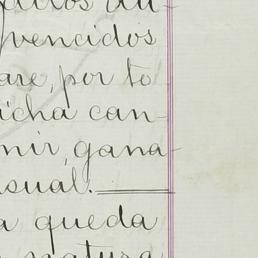 vencidos
are, por to
icha can-
mir, gana-
sual.
a queda
natura